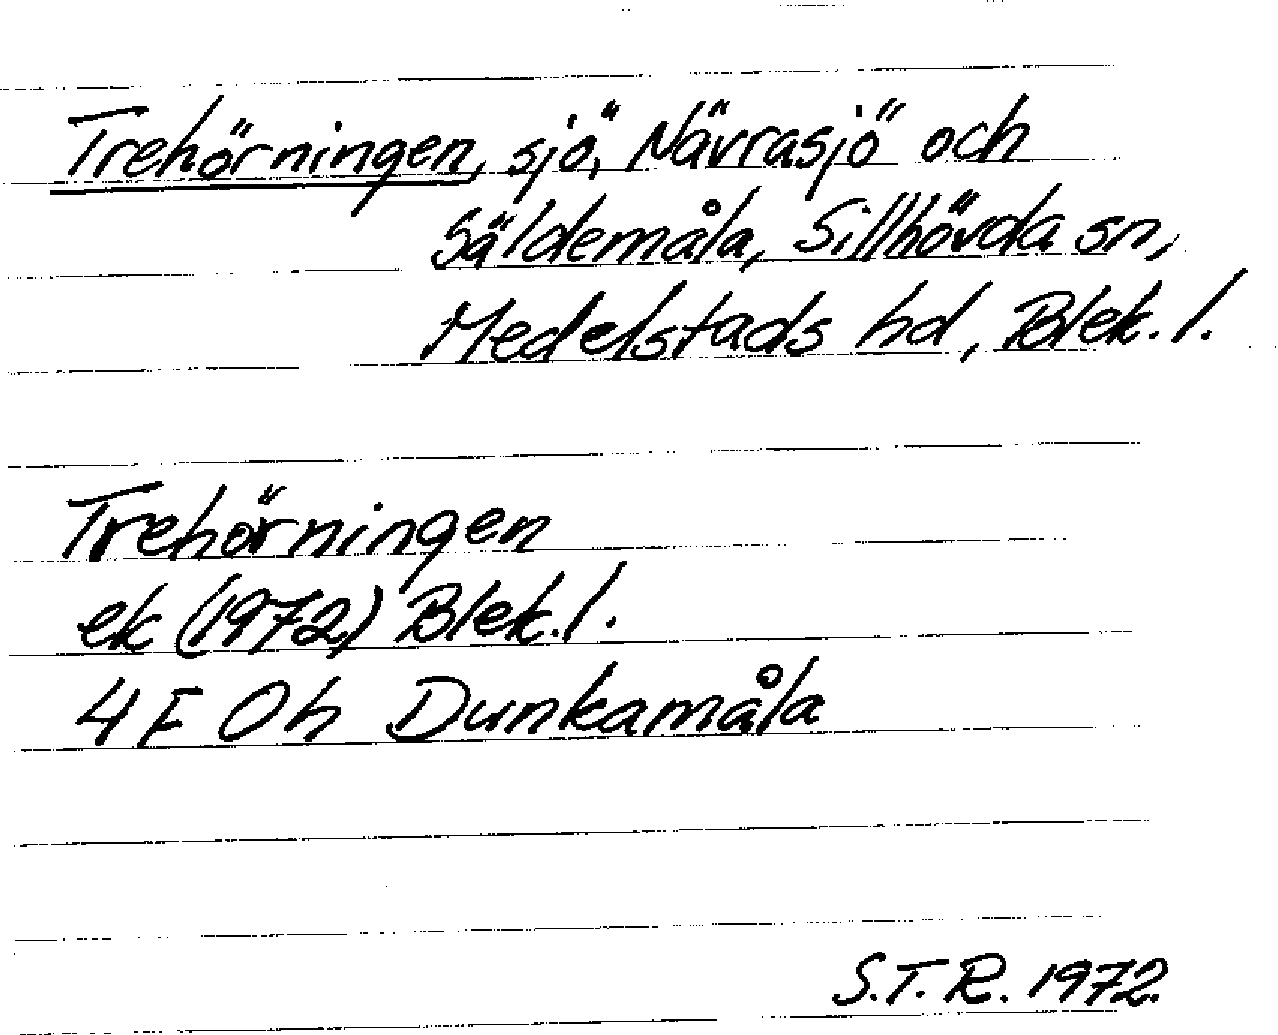 Trehörningen, sjö, Nävrasjö och
Säldemåla, Sillhövda sn,
Medelstads hd, Blek. l.
Trehörningen
ek (1972) Blek. l.
4 F 0h Dunkamåla
S.T.R. 1972.